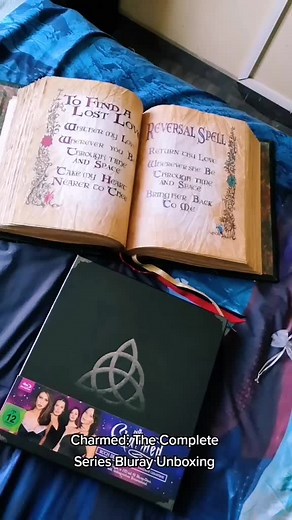 To Find a
Lost Love
Whither my Love
Wherever you Be
Through time
and Space
Take my Heart
Nearer to Thee
Reversal Spell
Return thy Love
Wherever she Be
Through time
and Space
Bring her Back
To Me
12
Charmed
Charmed: The Complete
Series Bluray Unboxing